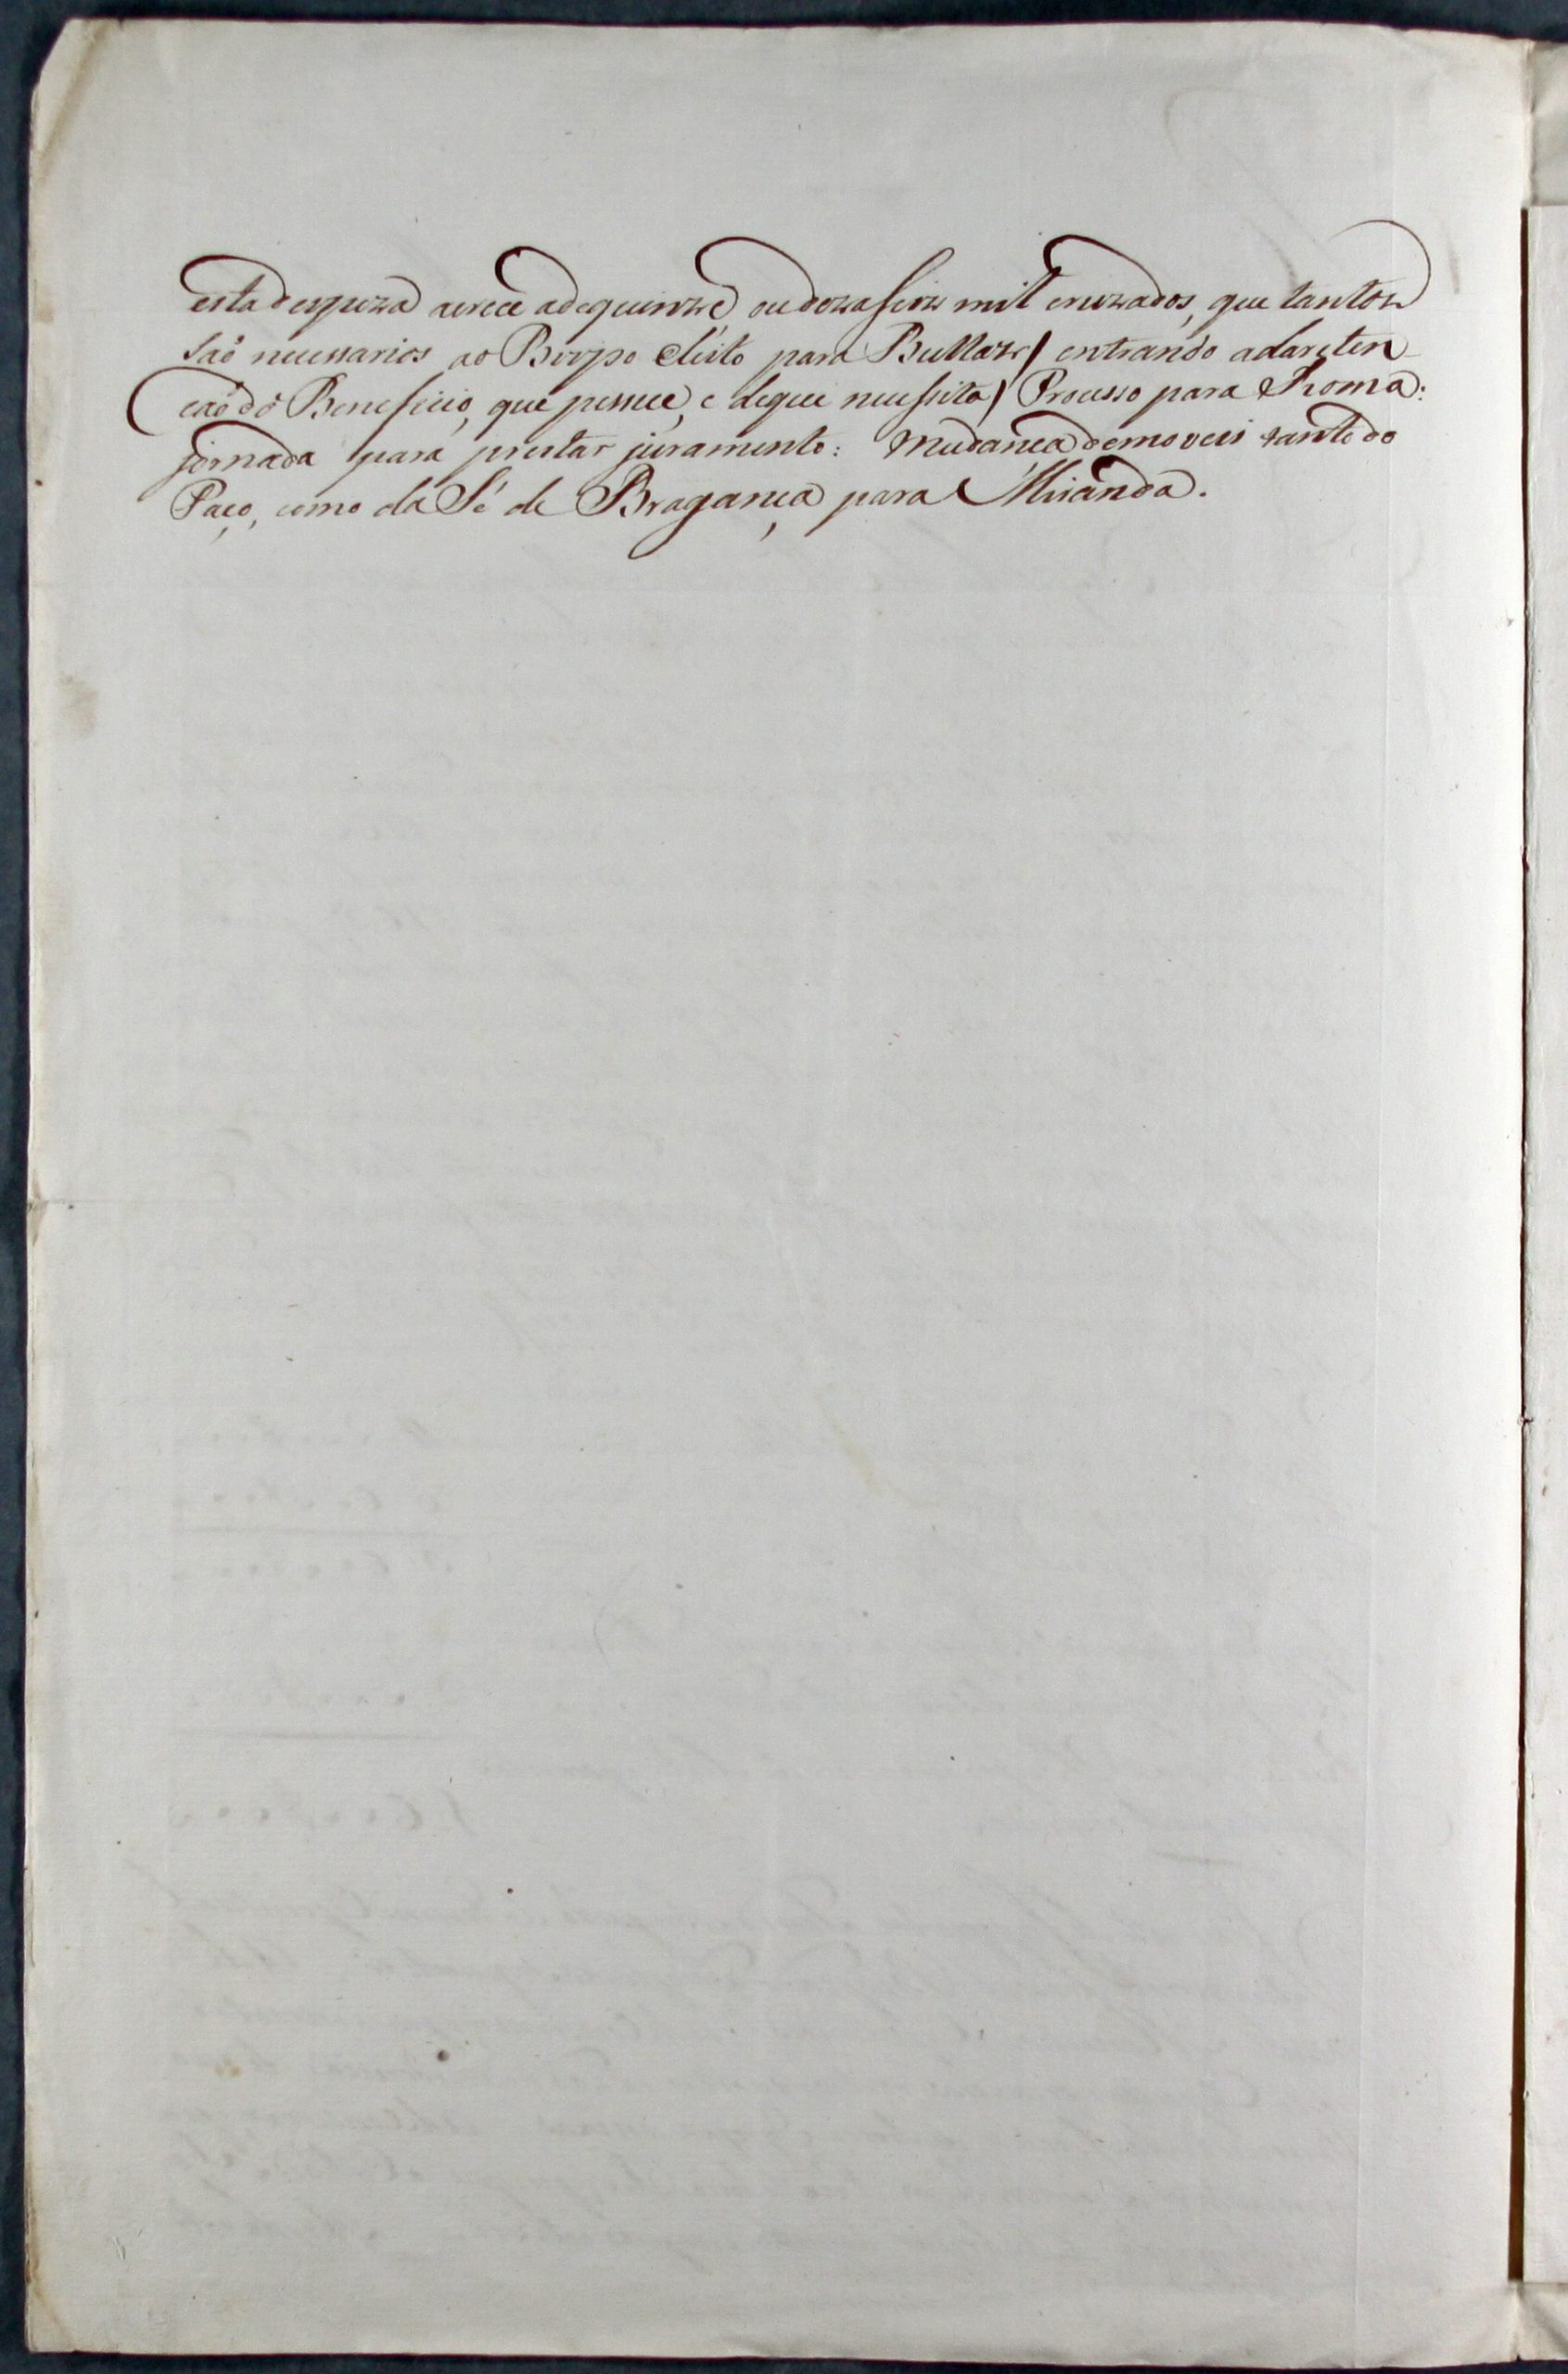 esta despeza acrece a de quinze, ou dozaseis mil cruzados, que tantos
saõ necessarios ao Bispo eleito para Bullas / entrando a da reten-
çaõ do Beneficio, que possue, e de que necessita / Processo para Roma:
jornada para prestar juramento: Mudança de moveis tanto do
Paço, como da Sé de Bragança para Miranda.